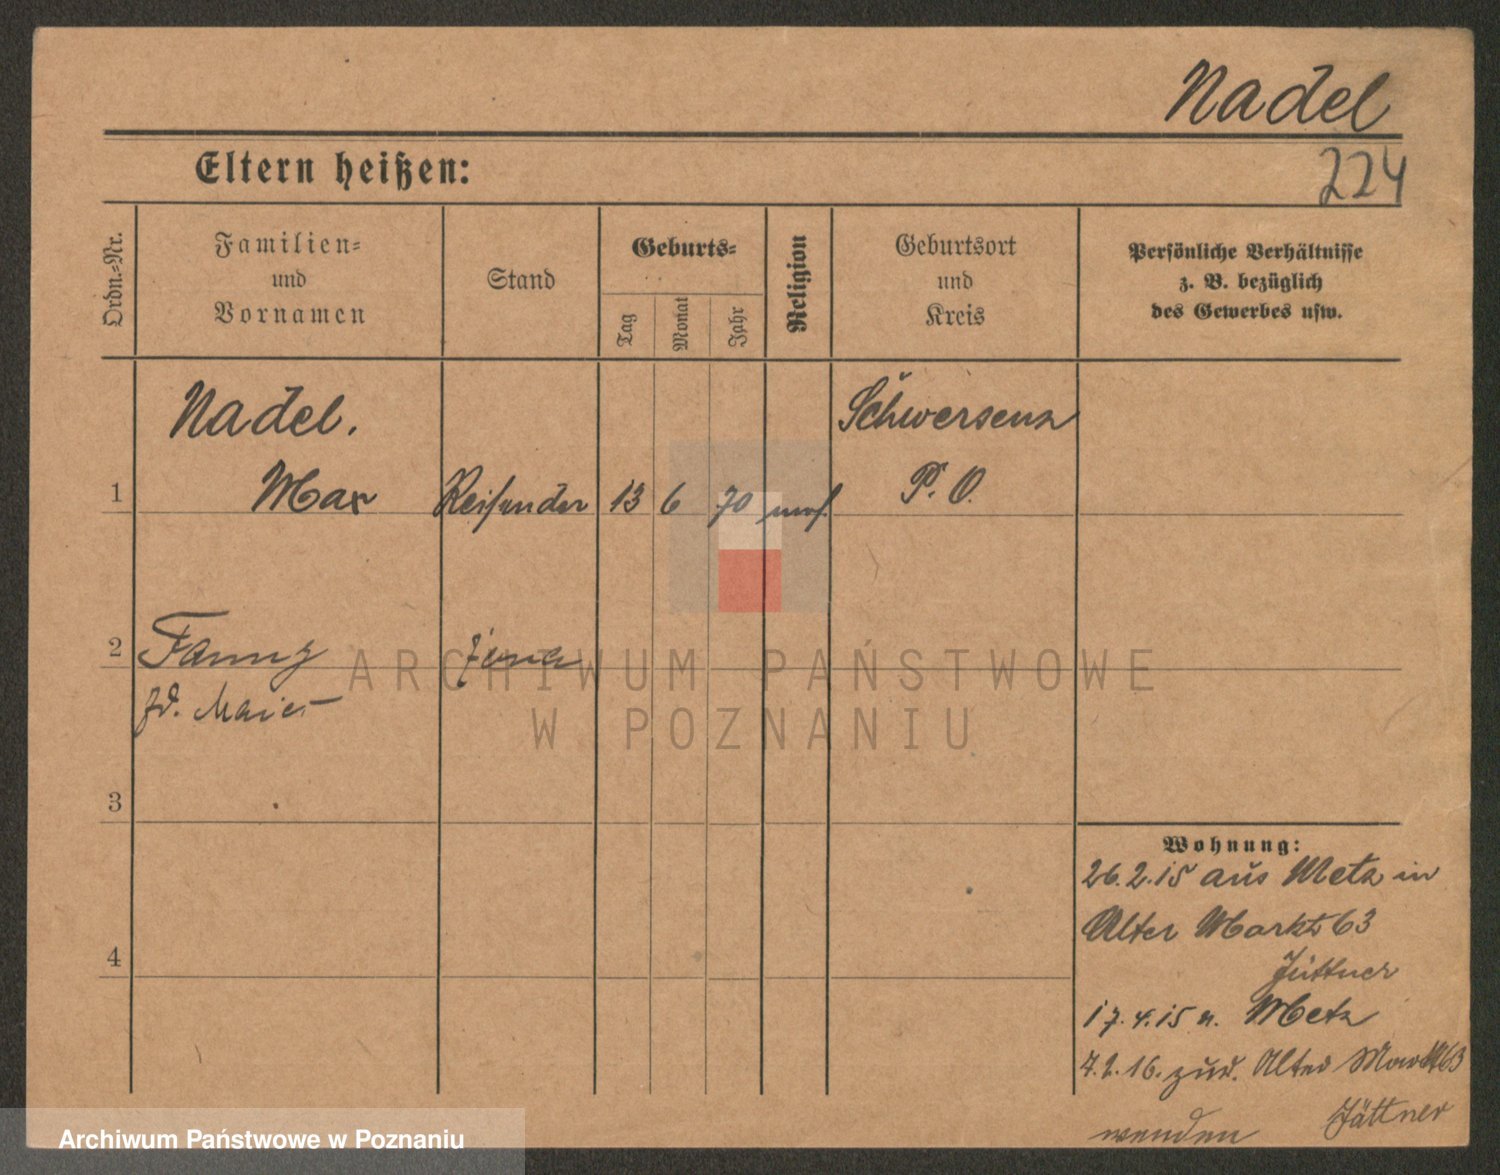 Nadel
224
Eltern heißen:
Ordn.-Nr.
Familien-
und
Vornamen
Stand
Geburts-
Tag
Monat
Jahr
Religion
Geburtsort
und
Kreis
Persönliche Verhältnisse
z. B. bezüglich
des Gewerbes usw.
Nadel.
Schwersenz
1 Max Reisender 13 6 70 mos. P. O.
2 Fanny
gb. Maier
3
4
ARCHIWUM PAŃSTWOWE
W POZNANIU
Wohnung:
26.2.15 aus Metz in
Alter Markt 63
Jüttner
17.4.15 n. Metz
7.2.16. zur. Alter Markt 63
Jüttner
wenden
Archiwum Państwowe w Poznaniu